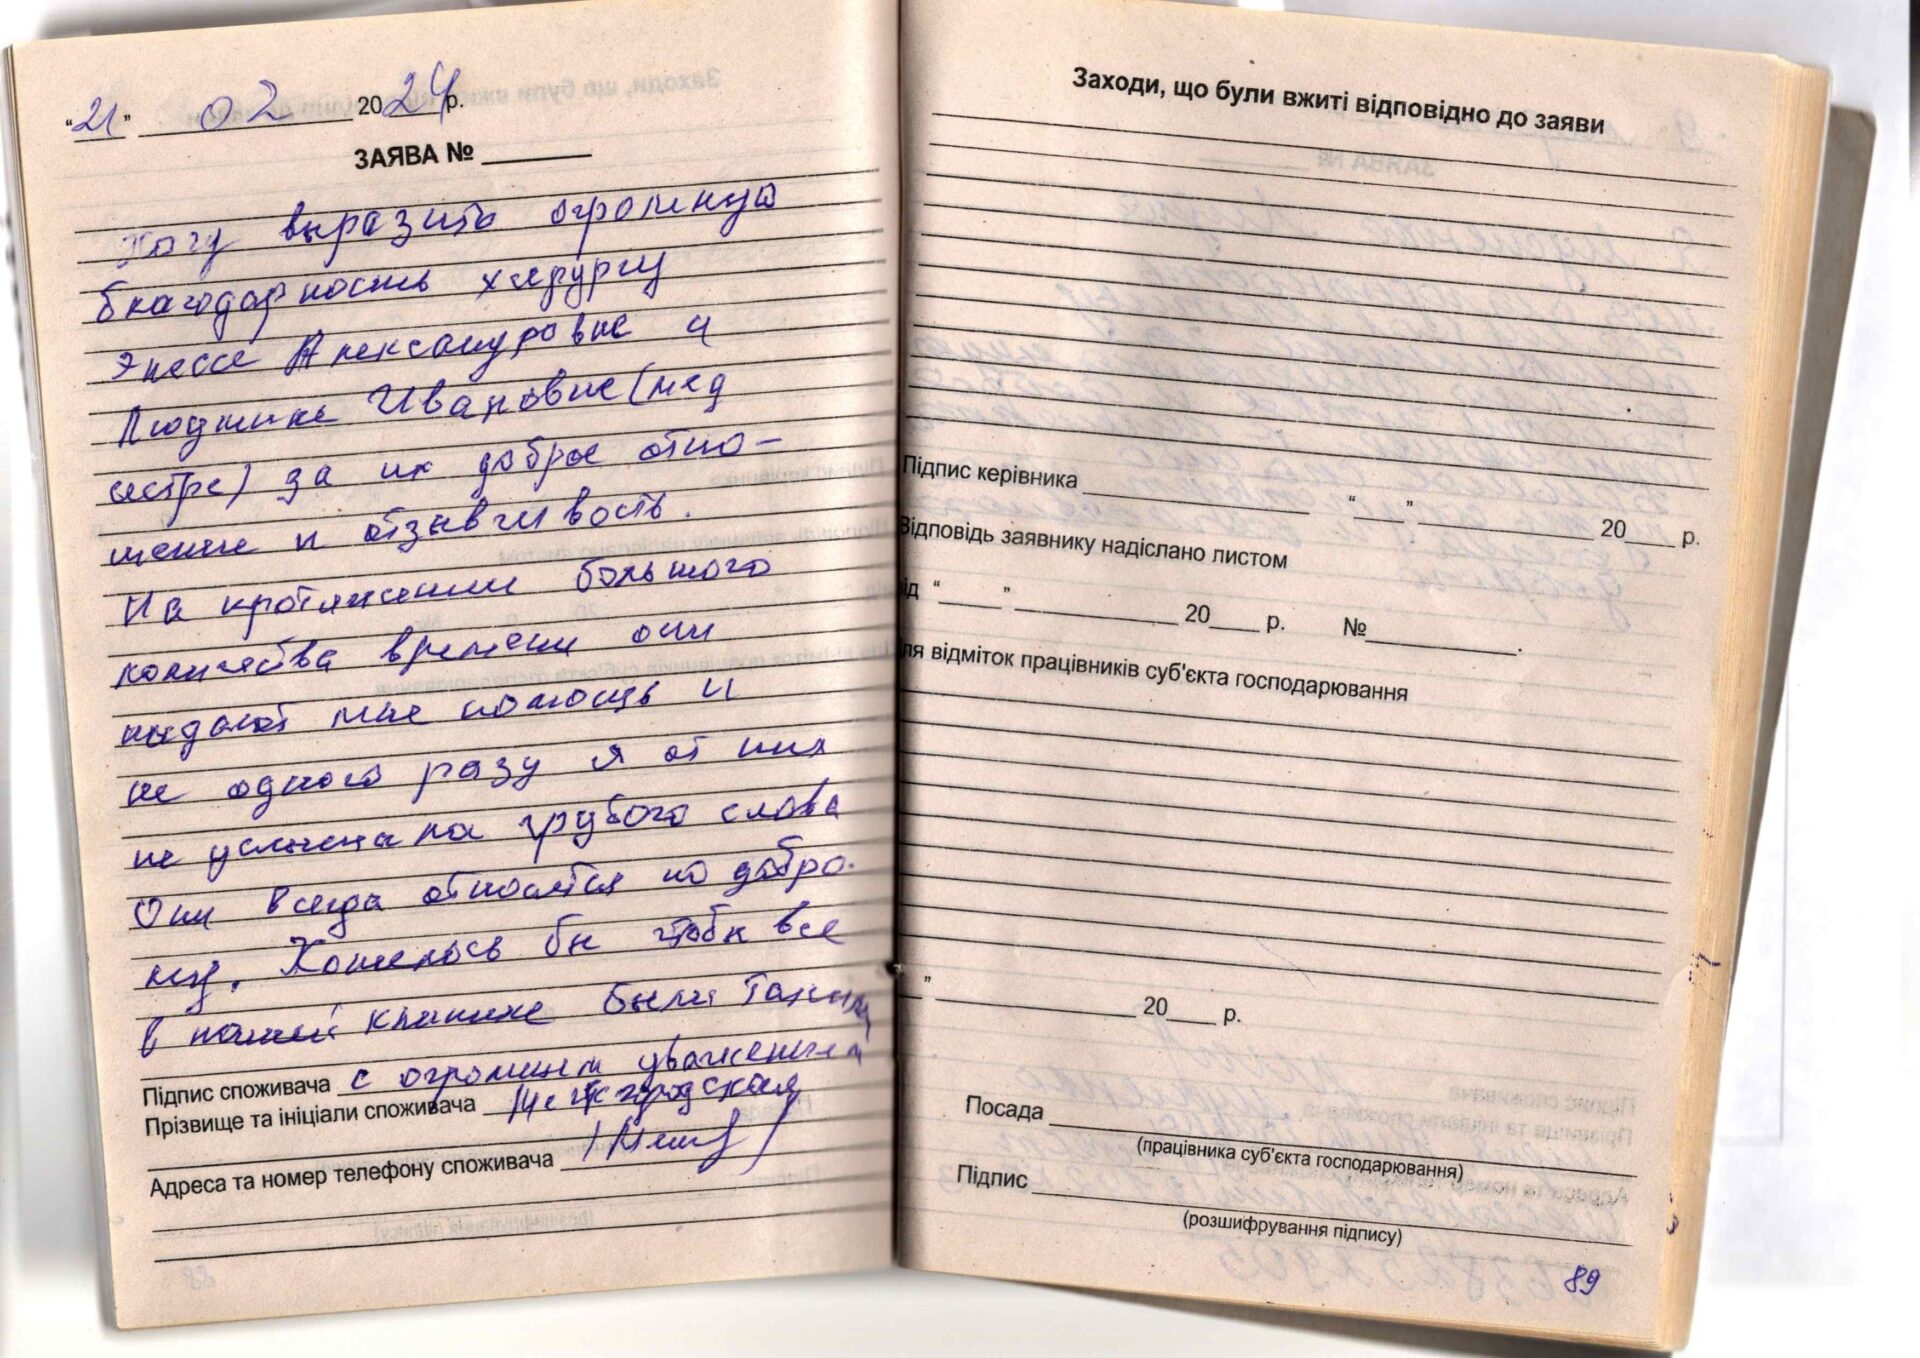 “21” 02 2024 р.
ЗАЯВА № ______
Хочу выразить огромную
благодарность хирургу
Энессе Александровне и
Людмиле Ивановне (мед
сестре) за их доброе отно-
шение и отзывчивость.
На протяжении большого
количества времени они
мне помощь и
не одного разу я от них
не услышала грубого слова
Они всегда относятся по добро-
му. Хотелось бы чтобы все
в нашей клинике были такими
Підпис споживача с огромным уважением
Прізвище та ініціали споживача
Адреса та номер телефону споживача
Заходи, що були вжиті відповідно до заяви
Підпис керівника ______ “____” ______ 20____ р.
Відповідь заявнику надіслано листом
ід “____” ______ 20____ р. №______.
ля відміток працівників суб'єкта господарювання
” ______ 20____ р.
Посада
(працівника суб'єкта господарювання)
Підпис
(розшифрування підпису)
89